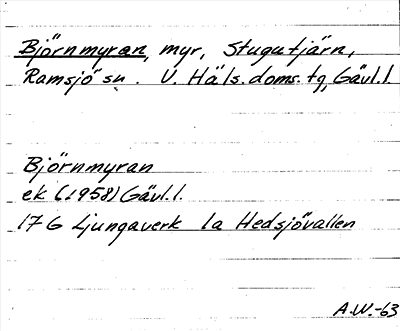 Björnmyran, myr, Stugutjärn,
Ramsjö sn. V. Häls. doms. tg, Gävl.l.
Björnmyran
ek (1958) Gävl.l.
17 G Ljungaverk 1a Hedsjövallen
A.W.-63